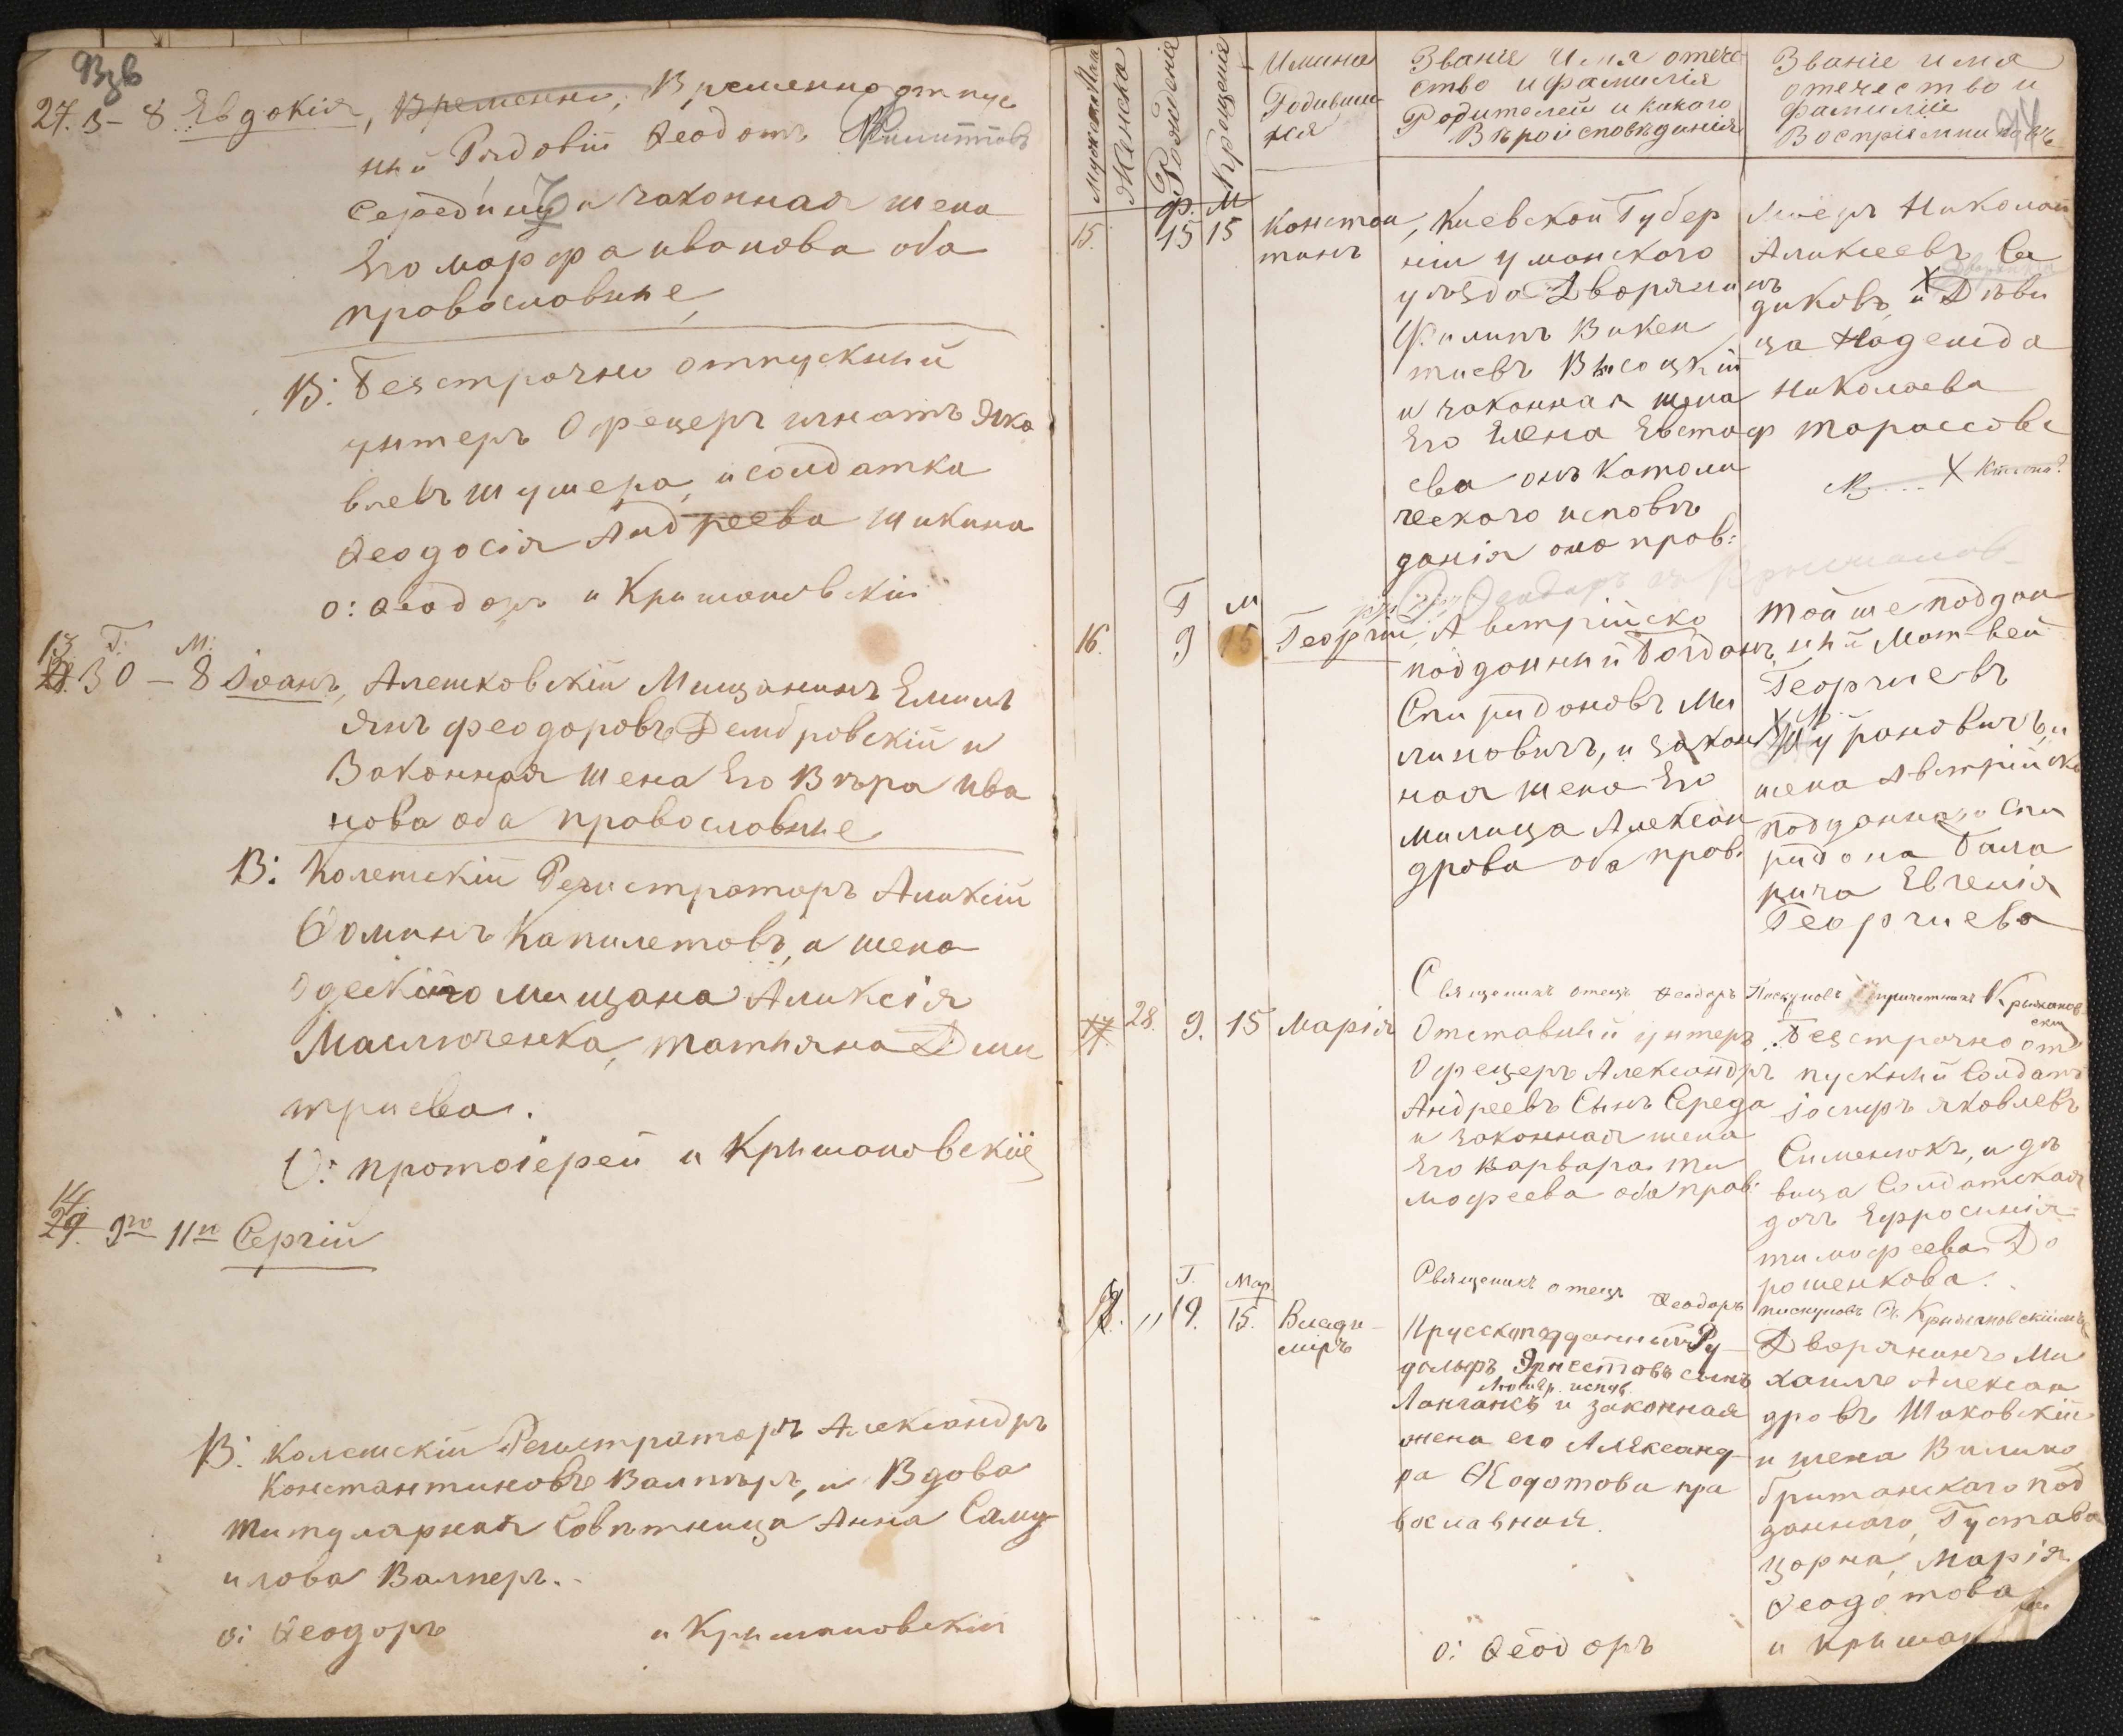 Взв
27. 3 - 8 Евдокія, Временно, Временно отпуск
ный Рядовій Ѳеодотъ Филиповъ
Середину и законная жена
Его Марфа иванова оба
провославные
В: Безсрочно отпускный
унтеръ Офецеръ игнатъ Яко
влевъ шушера, и солдатка
Ѳеодосія Андреева шикина
О: Ѳеодоръ и Крижановскій
13. Г. М:
28. 30 - 8 Іоанъ, Алешковскій Мищанинъ Емил
янъ феодоровъ Дембровскій и
Законная жена Его Вѣра ива
нова оба провославные
В: Колежскій Регистраторъ Алексій
Фоминъ Капилетовъ, и жена
Одескаго мищана Алексія
Маслюченка, татьяна Дми
триева.
О: протоіерей и Крижановскій
14.
29. 9го 11го Сергій
В: Колежскій Регистраторъ Александръ
Константиновъ Валтеръ, и Вдова
титулярная Совѣтница Анна Саму
илова Валтеръ.
о: Ѳеодоръ и Крижановскій
Мужеска Пола
Женска
Рожденіе
Крещеніе
Имина Родивши хся
Званіе Имя отече
ство и фамилія
Родителей и какого
Вѣроисповѣданія
Званіе имя
отечество и
фамиліе
Воспріемниковъ
94
ф. М
15. 15 15 Констан
тинъ
, Киевской Губер
ніи уманского
уѣзда Дворянинъ
Филипъ Викен
тиевъ Высоцкій
и законная жена
Его Елена Евстаф
ева онъ Католи
ческого исповѣ
данія она прав:
Алексеевъ Са
диковъ, и Дѣви
ца Надежда
Николаева
тарассова
Г М
16. 9 15 Георгій, Австрійско
подданный Богданъ
Спиридоновъ Ми
линовичъ, и закон
ная жена Его
милица Алексан
дрова оба прав.
той же поддан
ный Мат-вей
Георгиевъ
Шурановичъ, и
жена Австрійско
подданаго Спи
ридона Бала
рича Евгенія
Георгиева
Священикъ отецъ Ѳеодоръ Пискуновъ причетникъ Крижанов
скій
17. 28. 9. 15 Марія
Отставный унтеръ
Офецеръ Александръ
Андреевъ Сынъ Середа
и законная жена
Его Варвара Ти
мофеева оба прав:
Безсрочно от
пускный Солдатъ
Іосифъ яковлевъ
Сименюкъ, и дѣ
вица Солдатская
дочъ Ефросинія
тимофеева До
рошенкова.
Священикъ отецъ Ѳеодоръ пискуновъ Крижановскій
Г. Мар
18. " 19. 15. Влади-
міръ
Прусскоподданный Ру-
дольфъ Эрнестовъ сынъ
Лютер. испов.
Лангансъ и законная
жена его Александ-
ра Ѳеодотова пра
вославная.
Дворянинъ Ми
хаилъ Алексан
дровъ Маковскій
и жена Велико
британскаго под
даннаго, Густава
цорна, Марія
Ѳеодотова
о: Ѳеодоръ и Крижан